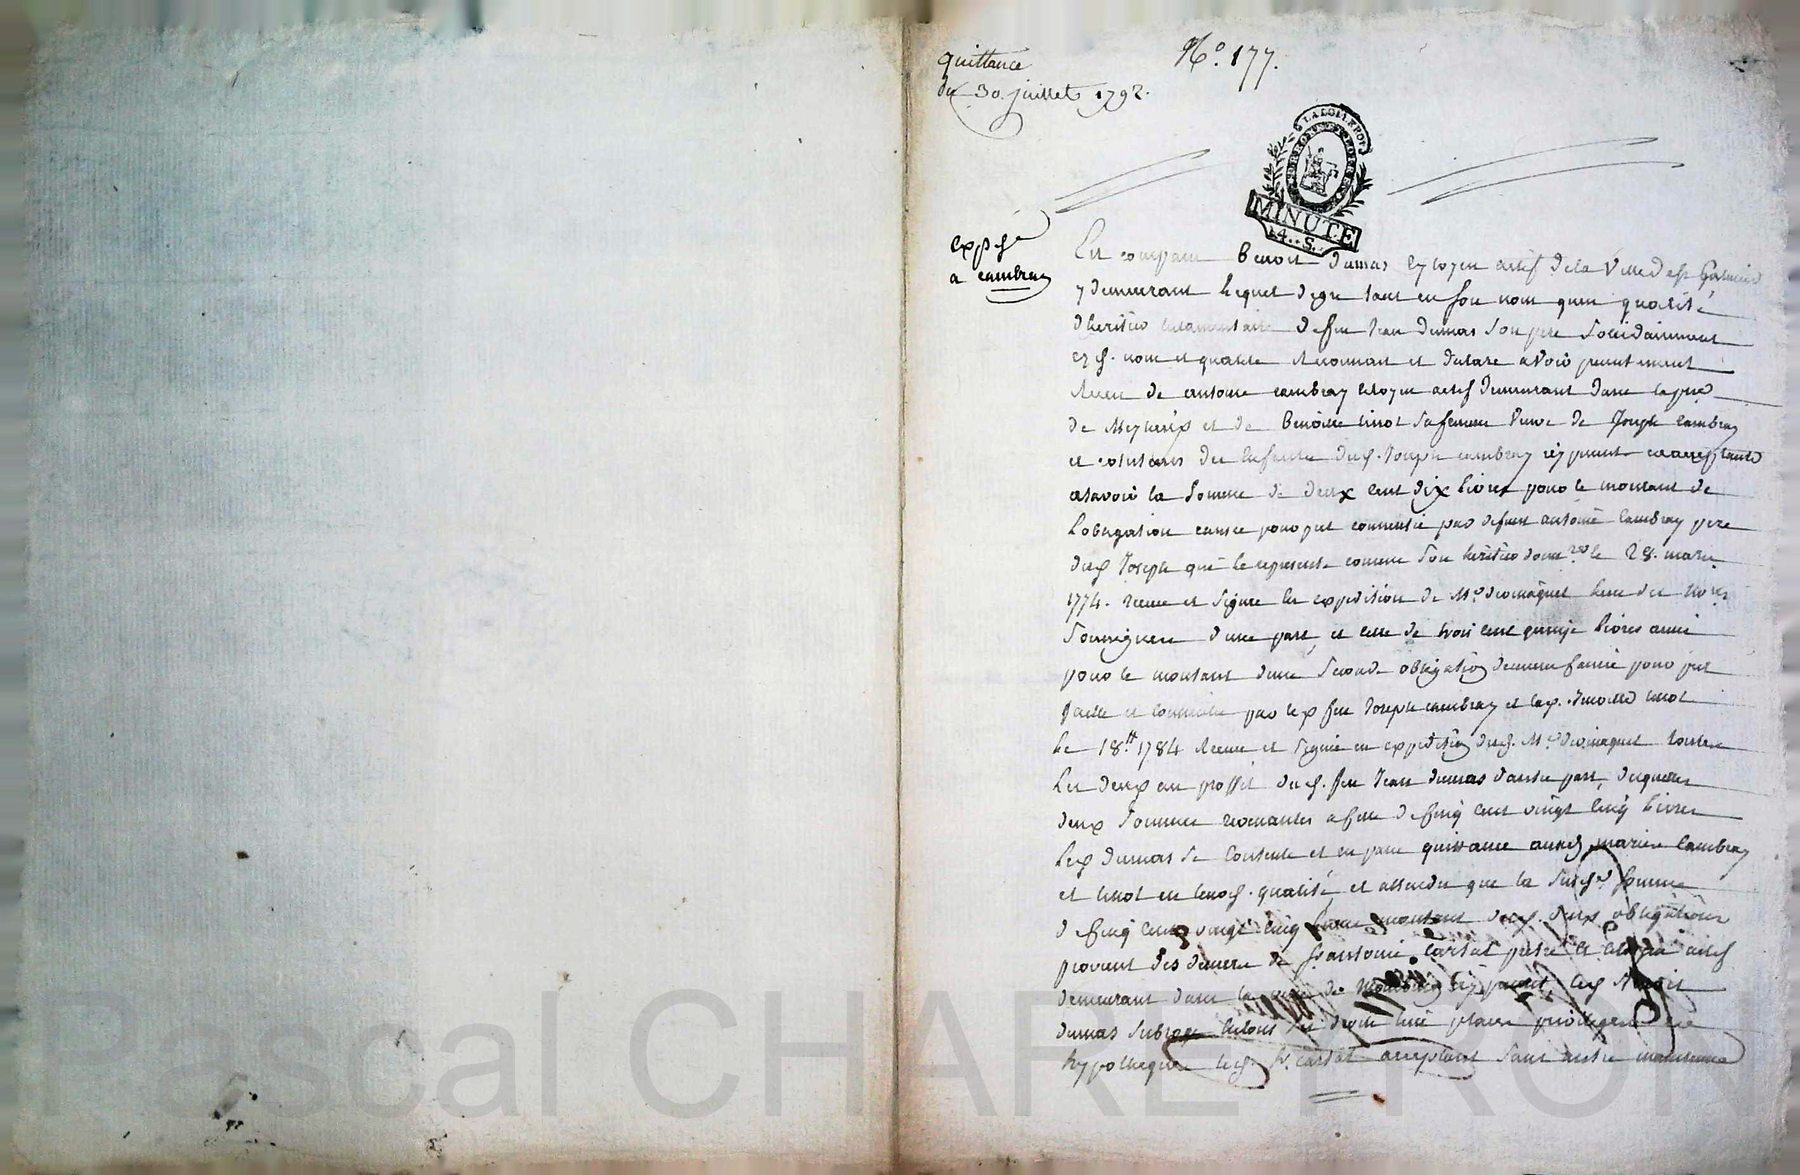 quittance
du 30. juillet 1792.
N.º 177.
LA LOI LE ROI
MINUTE
4. S.
exp
a cambray
Est comparu Benoit Dumas Citoyen actif de la Ville de st Galmier
y demeurant lequel degre tant en son nom quen qualité
dheritier testamentaire defeu Jean Dumas Son pere Solidairement
esd. nom et qualité Reconnait et declare avoir presentement
Receu de antoine cambray Citoyen actif demeurant dans la psse
de Meylieu et de Benoitte tinot Sa femme Veuve de Joseph Cambray
et des Enfants dud. Joseph cambray icy presents et acceptants
asavoir la Somme de deux Cent dix livres pour le montant de
Lobligation causée pour pret consentie par defunt antoine Cambray pere
dud Joseph qui le represente comme Son heritier le 28. mars
1774. receue et Signée en expedition de Me lun des Nores
Soussignés dune part, et celle de trois Cent quinze livres aussi
pour le montant dune Seconde obligation pour pret
faitte et consentie par led feu Joseph cambray et lad. Benoitte tinot
Le 18 1784 Receue et Signée en expedition dud. Me toutes
Les deux au proffit dud. feu Jean dumas dautre part, desquelles
deux Sommes revenantes a celle de Cinq Cent vingt Cinq livres
Led Dumas Se Contente et en passe quittance auxd mariés Cambray
et tinot en leursd. qualité, et attendu que la Susde Somme
de Cinq Cent vingt Cinq livres montant desd. deux obligations
provient des deniers de Sr antoine Carsat pretre et Citoyen actif
demeurant dans la de icy present, led Benoit
dumas Subroge en droits lieu place privilege et
hypotheque led. Sr. Carsat acceptant Sans autre maintenue
Pascal CHAREYRON